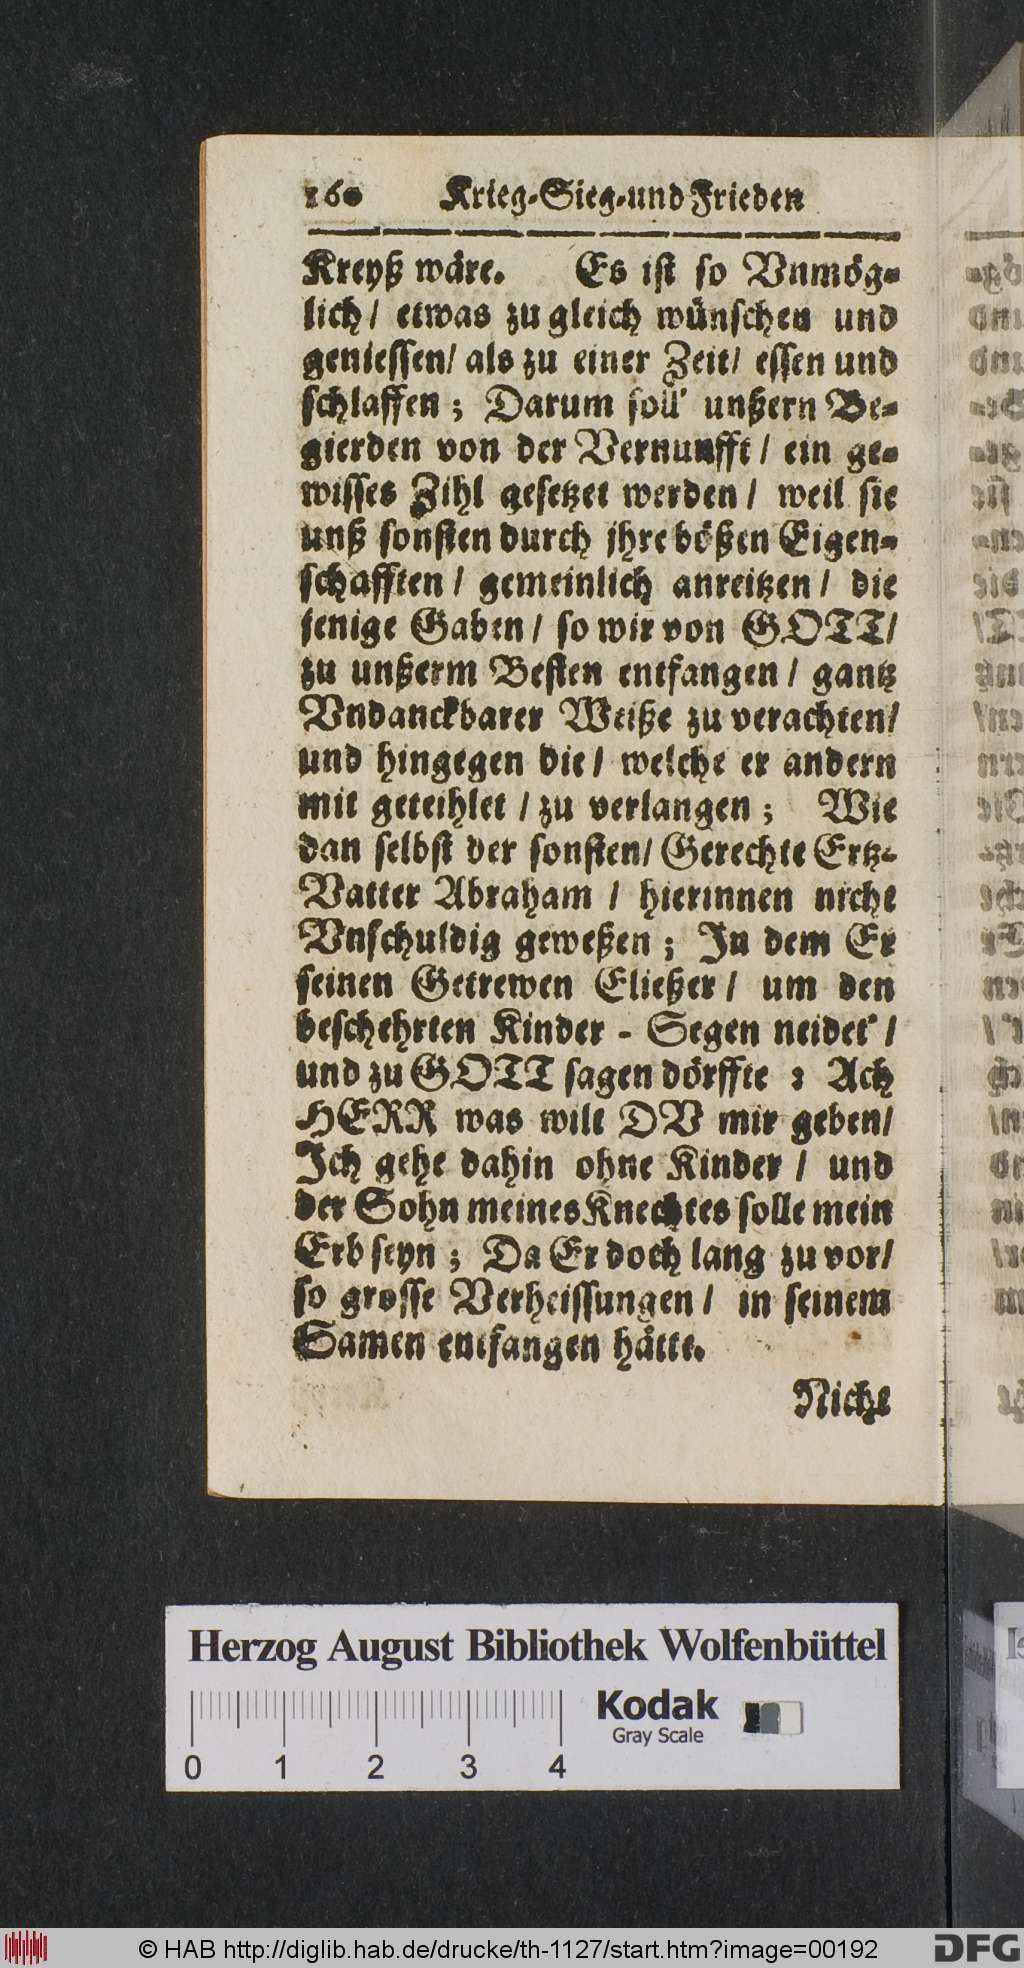 160 Krieg-Sieg-und Frieden
Kreyß wäre. Es ist so Vnmög-
lich/ etwas zu gleich wünschen und
geniessen/ als zu einer Zeit/ essen und
schlaffen; Darum soll' unßern Be-
gierden von der Vernunfft/ ein ge-
wisses Zihl gesetzet werden/ weil sie
unß sonsten durch jhre bößen Eigen-
schafften/ gemeinlich anreitzen/ die
jenige Gaben/ so wir von GOTT/
zu unßerm Besten entfangen/ gantz
Vndanckbarer Weiße zu verachten/
und hingegen die/ welche er andern
mit geteihlet/ zu verlangen; Wie
dan selbst der sonsten/ Gerechte Ertz-
Vatter Abraham/ hierinnen nicht
Vnschuldig geweßen; In dem Er
seinen Getrewen Eließer/ um den
beschehrten Kinder-Segen neidet'/
und zu GOTT sagen dörffte: Ach
HERR was wilt DV mir geben/
Ich gehe dahin ohne Kinder/ und
der Sohn meines Knechtes solle mein
Erb seyn; Da Er doch lang zu vor/
so grosse Verheissungen/ in seinem
Samen entfangen hätte.
Nicht
Herzog August Bibliothek Wolfenbüttel
Kodak
Gray Scale
0 1 2 3 4
© HAB http://diglib.hab.de/drucke/th-1127/start.htm?image=00192
DFG